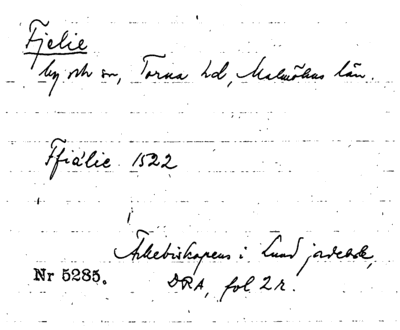 Fjelie
by och sn, Torna hd, Malmöhus län.
Ffiälie 1522
Ärkebiskopens i Lund jordebok,
Nr 5285.
DRA, fol. 2 r.